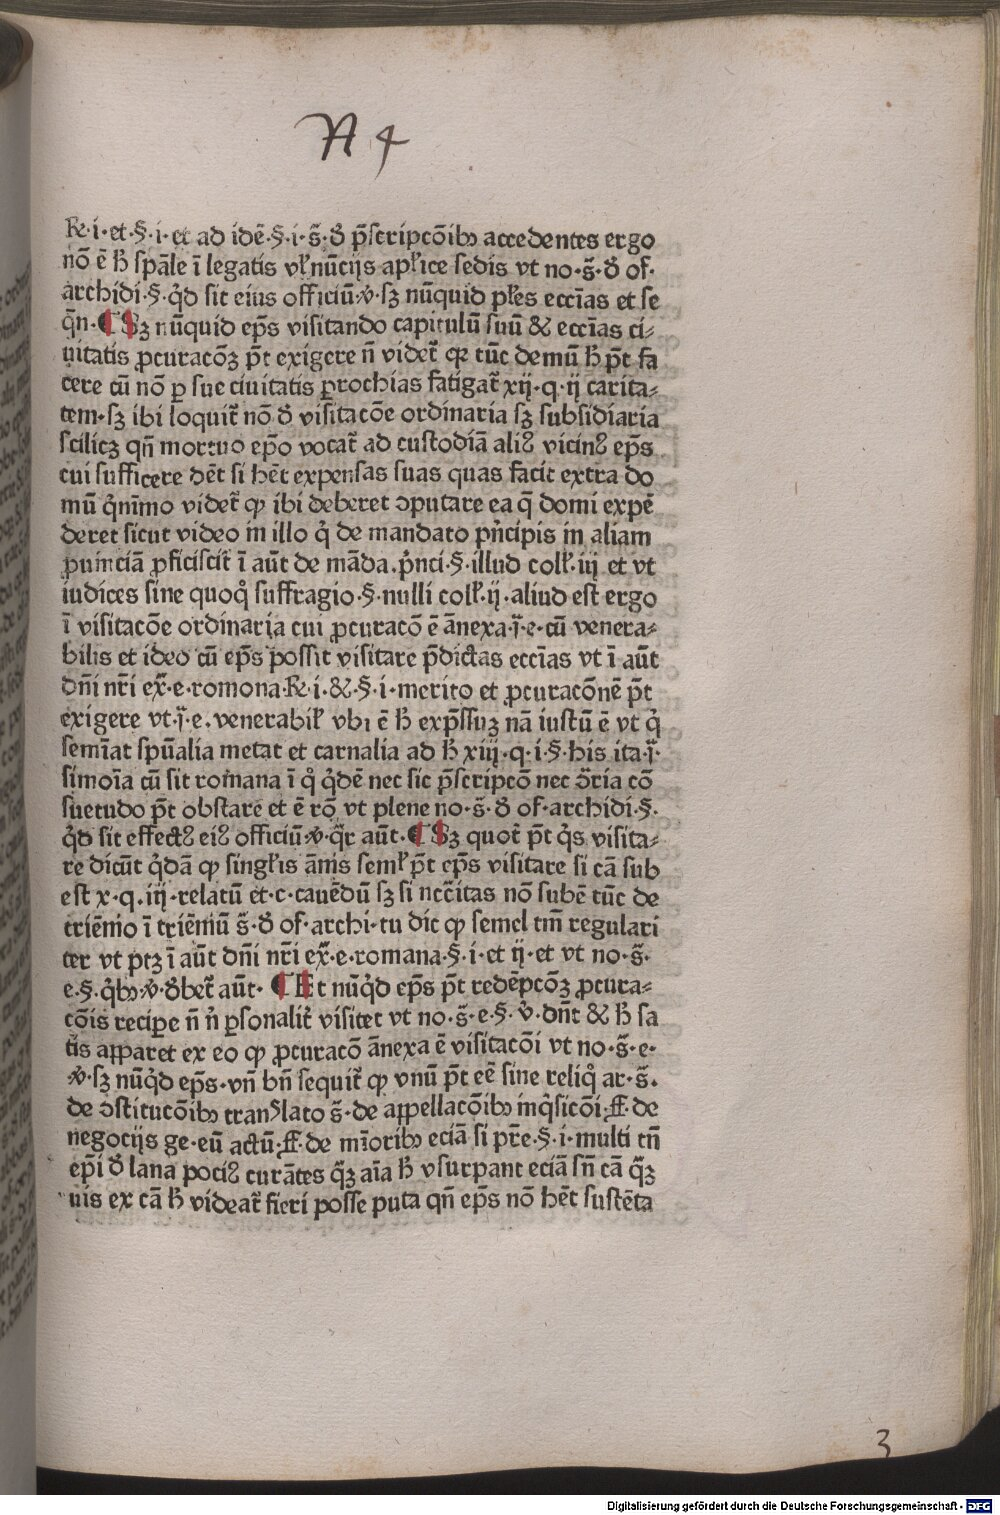 N 4
R·i·et·§·i·et ad idē·§·i·s̄·ð p̄scripcōibꝫ accedentes ergo
nō ē ħ sp̄ale ī legatis vl̵ nūcijs apl̵ice sedis vt no·s̄·ð of·
archidi·§·q̇d sit eius officiū·ꝟ·sꝫ nūquid pl̵es ecc̄ias et se
q̄n·¶ Sꝫ nūquid ep̄s visitando capitulū suū & ecc̄ias ci⸗
uitatis ꝓcuracōꝫ p̄t exigere n̄ videt᷑ qꝛ tūc demū ħ p̄t fa
cere cū nō ꝑ sue ciuitatis ꝑrochias fatigat᷑ xij·q·ij carita⸗
tem·sꝫ ibi loquit᷑ nō ð visitacōe ordinaria sꝫ subsidiaria
scilicꝫ qn̄ mortuo ep̄o vocat᷑ ad custodiā aliꝰ vicinꝰ ep̄s
cui sufficere dēt si hēt expensas suas quas facit extra do
mū q̇nīmo videt᷑ ꝙ ibi deberet ↄputare ea q̄ domi expē
deret sicut video in illo q̇ de mandato pṅcipis in aliam
ꝓuinciā ꝓficiscit᷑ ī aūt de māda·pṙnci·§·illud coll̵·iij et vt
iudices sine quoq̇ suffragio·§·nulli coll̵·ij·aliud est ergo
ī visitacōe ordinaria cui ꝓcuracō ē ānexa·j̄·e·cū venera⸗
bilis et ideo cū ep̄s possit visitare p̄dictas ecc̄ias vt ī aūt
dn̄i nr̄i ex̄·e·romona·R·i·&·§·i·merito et ꝓcuracōnē p̄t
exigere vt·j̄·e·venerabil̵ vbi ē ħ exp̄ssuꝫ nā iustū ē vt q̇
semīat spūalia metat et carnalia ad ħ xiij·q·i·§·his ita·j̄·
simoīa cū sit romana ī q̇ q̇dē nec sic p̄scripcō nec ↄ̄ria cō
suetudo p̄t obstare et ē rō vt plene no·s̄·ð of·archidi·§·
q̇d sit effectꝰ eiꝰ officiū·ꝟ·q̄r aūt·¶ Sꝫ quot᷑ p̄t q̇s visita⸗
re dicūt q̇dā ꝙ singl̵is ānis seml̵ p̄t ep̄s visitare si cā sub
est x·q·iij·relatū et·c·cauēdū sꝫ si nccītas nō subē tūc de
triēnio ī triēniū s̄·ð of·archi·tu dic ꝙ semel tm̄ regulari
ter vt ptꝫ ī aūt dn̄i nr̄i ex̄·e·romana·§·i·et ij·et vt no·s̄·
e·§·q̇bꝫ·ꝟ·ðbet᷑ aūt· ¶ Et nūq̇d ep̄s p̄t redēpcōꝫ ꝓcura⸗
cōis recipe n̄ ṅ ꝑsonalit᷑ visitet vt no·s̄·e·§·ꝟ·dn̄t & ħ sa
tis apparet ex eo ꝙ ꝓcuracō ānexa ē visitacōi vt no·s̄·e·
ꝟ·sꝫ nūq̇d ep̄s·vn̄ bn̄ sequit᷑ ꝙ vnū p̄t eē sine reliq̇ ar·s̄·
de ↄstitucōibꝫ tranꝰlato s̄·de appellacōibꝫ inq̇sicōi·ff·de
negocijs ge·eū actū·ff·de mīoribꝫ eciā si pr̄e·§·i·multi tn̄
ep̄i ð lana pociꝰ curātes q̄ꝫ aīa ħ vsurpant eciā sn̄ cā q̄ꝫ
uis ex cā ħ videat᷑ fieri posse puta qn̄ ep̄s nō hēt sustēta
3
Digitalisierung gefördert durch die Deutsche Forschungsgemeinschaft - DFG